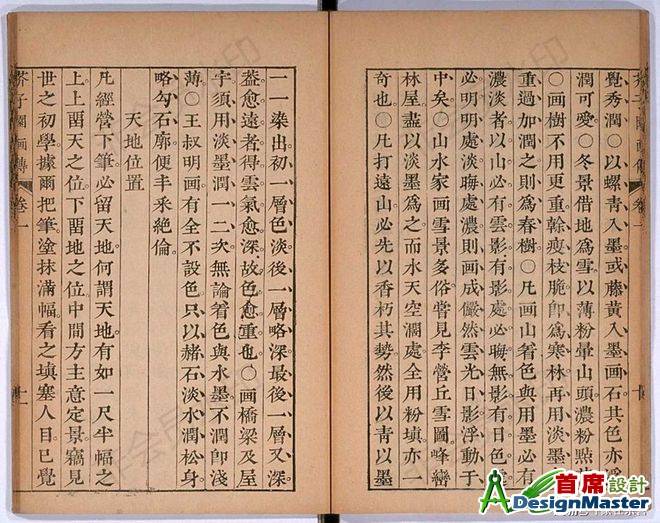 覺秀潤○以螺青入墨或藤黃入墨画石其色亦浮
潤可愛○冬景借地爲雪以薄粉暈山頭濃粉㸃苔
○画樹不用更重幹瘦枝脆卽爲寒林再用淡墨
重過加潤之則爲春樹○凡画山着色與用墨必有
濃淡者以山必有雲影有影處必晦無影有日色處
必明明處淡晦處濃則画成儼然雲光日影浮動于
中矣○山水家画雪景多俗嘗見李營丘雪圖峰巒
林屋盡以淡墨爲之而水天空濶處全用粉填亦一
奇也○凡打遠山必先以香朽其勢然後以青以墨
一一染出初一層色淡後一層略深最後一層又深
葢愈遠者得雲氣愈深故色愈重也○画橋梁及屋
宇須用淡墨潤一二次無論着色與水墨不潤卽淺
薄○王叔明画有全不設色只以赭石淡水潤松身
略勾石廓便丰采絶倫
天地位置
凡經營下筆必留天地何謂天地有如一尺半幅之
上上畱天之位下畱地之位中間方主意定景竊見
世之初學據爾把筆塗抹滿幅看之填塞人目已覺
芥子園画傳 卷一 十一
首席設計
ADesignMaster